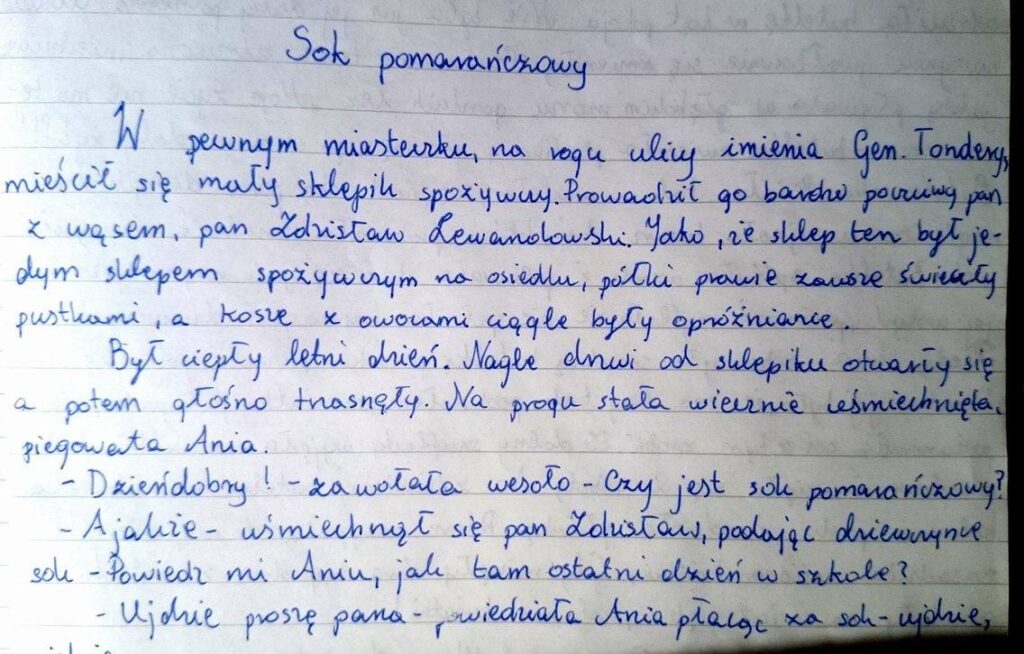 Sok pomarańczowy
W pewnym miasteczku, na rogu ulicy imienia Gen. Tondery,
mieścił się mały sklepik spożywczy. Prowadził go bardzo poczciwy pan
z wąsem, pan Zdzisław Lewandowski. Jako, że sklep ten był je-
dym sklepem spożywczym na osiedlu, półki prawie zawsze świeciły
pustkami, a kosze z owocami ciągle były opróżniane.
Był ciepły letni dzień. Nagle drzwi od sklepiku otwarły się
a potem głośno trzasnęły. Na progu stała wiecznie uśmiechnięta,
piegowata Ania.
- Dzieńdobry! - zawołała wesoło - Czy jest sok pomarańczowy?
- A jakże - uśmiechnął się pan Zdzisław, podając dziewczynce
sok - Powiedz mi Aniu, jak tam ostatni dzień w szkole?
- Ujdzie proszę pana - powiedziała Ania płacąc za sok - ujdzie,